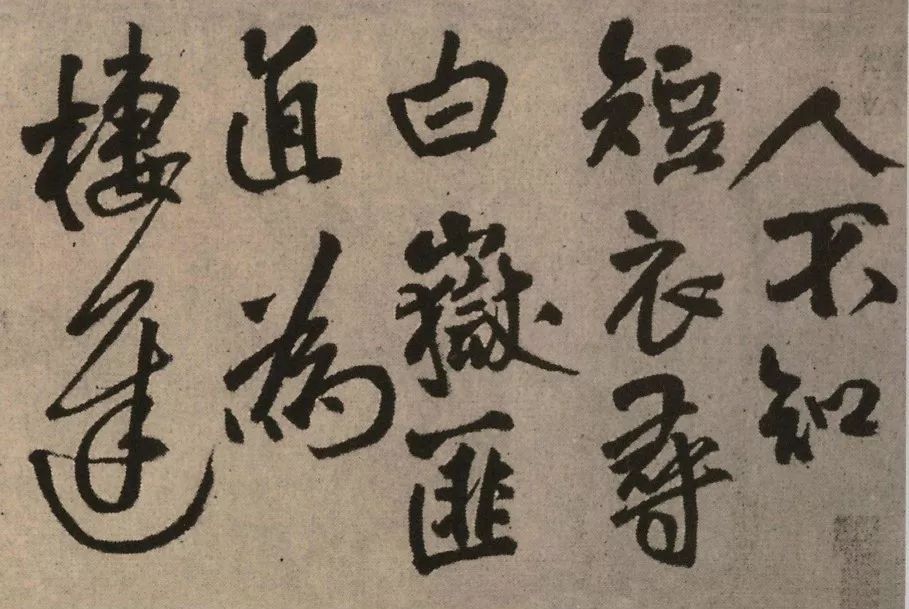 人不知
短衣尋
白嶽匪
道為
棲遲